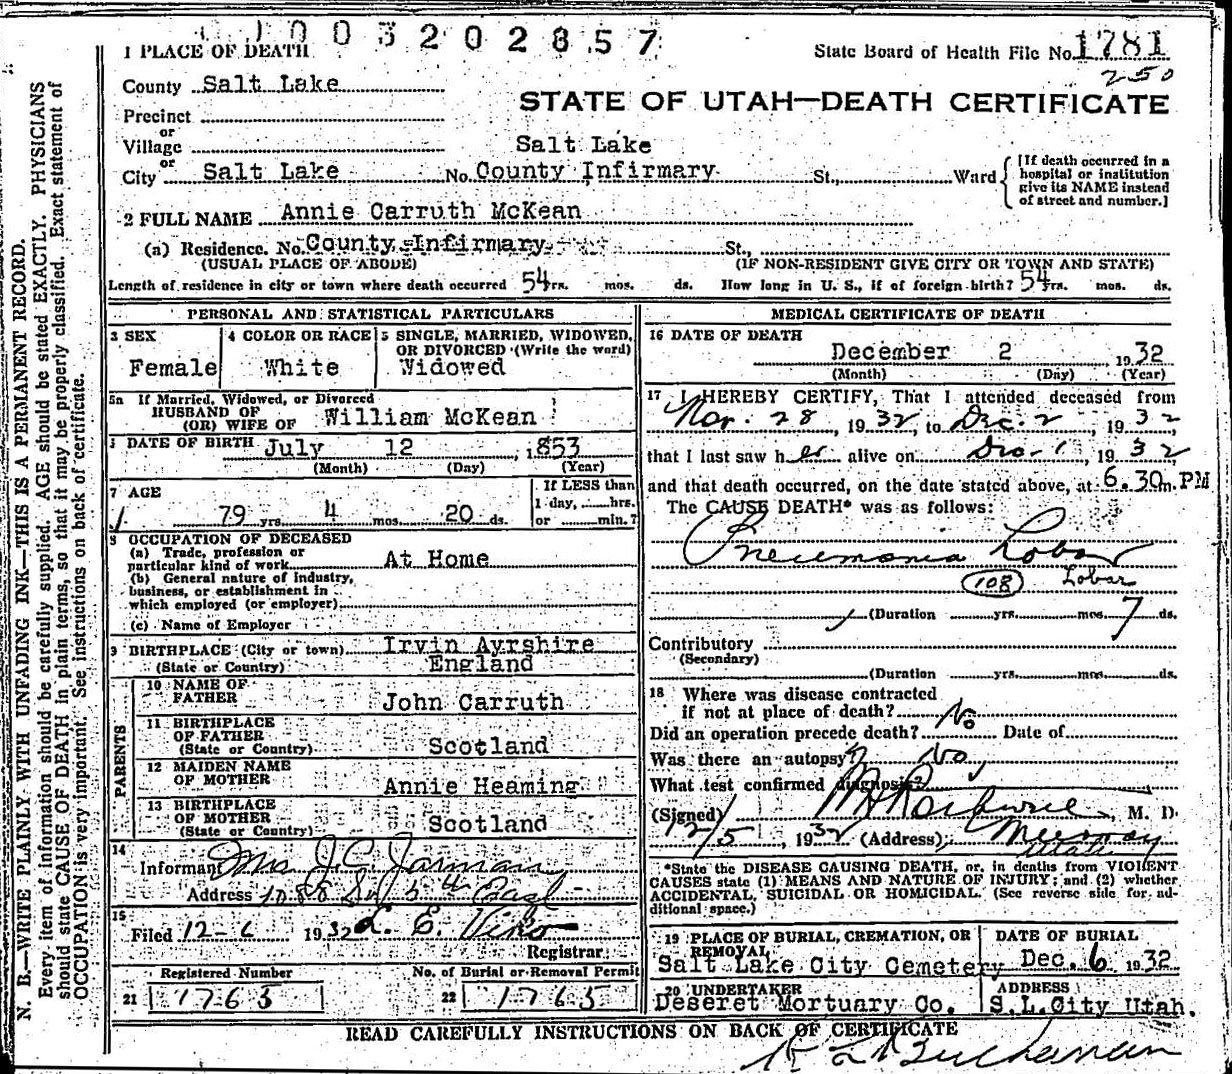 1003202857
1 PLACE OF DEATH
State Board of Health File No. 1781
250
County Salt Lake
STATE OF UTAH—DEATH CERTIFICATE
Precinct
or
Village
Salt Lake
or
City Salt Lake No. County Infirmary St., Ward
[If death occurred in a
hospital or institution
give its NAME instead
of street and number.]
2 FULL NAME Annie Carruth McKean
(a) Residence. No. County Infirmary St.,
(USUAL PLACE OF ABODE) (IF NON-RESIDENT GIVE CITY OR TOWN AND STATE)
Length of residence in city or town where death occurred 54 yrs. mos. ds. How long in U. S., if of foreign birth? 54 yrs. mos. ds.
PERSONAL AND STATISTICAL PARTICULARS
3 SEX
Female
4 COLOR OR RACE
White
5 SINGLE, MARRIED, WIDOWED,
OR DIVORCED (Write the word)
Widowed
5a If Married, Widowed, or Divorced
HUSBAND OF
(OR) WIFE OF William McKean
DATE OF BIRTH July 12, 1853
(Month) (Day) (Year)
7 AGE
79 yrs. 4 mos. 20 ds.
If LESS than
1 day, hrs.
or min.?
8 OCCUPATION OF DECEASED
(a) Trade, profession or
particular kind of work At Home
(b) General nature of industry,
business, or establishment in
which employed (or employer)
(c) Name of Employer
9 BIRTHPLACE (City or town) Irvin Ayrshire
(State or Country) England
PARENTS
10 NAME OF
FATHER John Carruth
11 BIRTHPLACE
OF FATHER
(State or Country) Scotland
12 MAIDEN NAME
OF MOTHER Annie Heaming
13 BIRTHPLACE
OF MOTHER
(State or Country) Scotland
14
Informant Mrs J. C. Jarman
Address 1088 So 5th East
15
Filed 12-6 1932 L. E. Viko
Registrar
Registered Number No. of Burial or Removal Permit
21 1763 22 1765
MEDICAL CERTIFICATE OF DEATH
16 DATE OF DEATH
December 2 1932
(Month) (Day) (Year)
17 I HEREBY CERTIFY, That I attended deceased from
Nov. 28, 1932, to Dec. 2, 1932
that I last saw her alive on Dec. 1, 1932,
and that death occurred, on the date stated above, at 6.30 m. PM
The CAUSE DEATH* was as follows:
Pneumonia Lobar
108 Lobar
(Duration yrs. mos. 7 ds.
Contributory
(Secondary)
(Duration yrs. mos. ds.
18 Where was disease contracted
if not at place of death? No
Did an operation precede death? Date of
Was there an autopsy? No
What test confirmed diagnosis?
(Signed) M. D.
12/5, 1932 (Address) Murray
Utah
*State the DISEASE CAUSING DEATH, or, in deaths from VIOLENT
CAUSES state (1) MEANS AND NATURE OF INJURY; and (2) whether
ACCIDENTAL, SUICIDAL OR HOMICIDAL. (See reverse side for ad-
ditional space.)
19 PLACE OF BURIAL, CREMATION, OR
REMOVAL
Salt Lake City Cemetery
DATE OF BURIAL
Dec. 6 1932
20 UNDERTAKER
Deseret Mortuary Co.
ADDRESS
S.L.City Utah.
READ CAREFULLY INSTRUCTIONS ON BACK OF CERTIFICATE
Buchanan
N. B.—WRITE PLAINLY WITH UNFADING INK—THIS IS A PERMANENT RECORD.
Every item of information should be carefully supplied. AGE should be stated EXACTLY. PHYSICIANS
should state CAUSE OF DEATH in plain terms, so that it may be properly classified. Exact statement of
OCCUPATION is very important. See instructions on back of certificate.